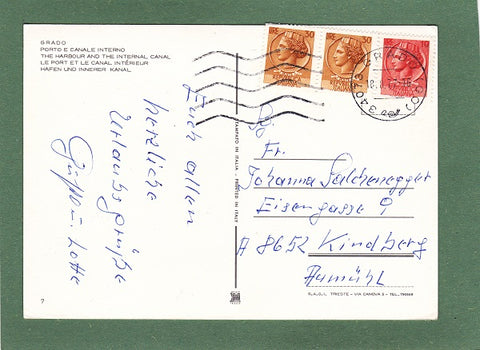 GRADO
PORTO E CANALE INTERNO
THE HARBOUR AND THE INTERNAL CANAL
LE PORT ET LE CANAL INTÉRIEUR
HAFEN UND INNERER KANAL
Euch allen
herzliche
Urlaubsgrüße
Lotte
7
STAMPATO IN ITALIA - PRINTED IN ITALY
LIRE 30
LIRE 30
34073 GRADO (GO)
Fr.
Johanna Salchenegger
Eisengasse 9
A 8652 Kindberg
Aumühl
TRIESTE - VIA CANOVA